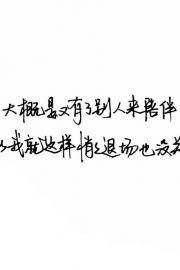 大概是又有了别人来陪伴
我就这样悄々退场也没